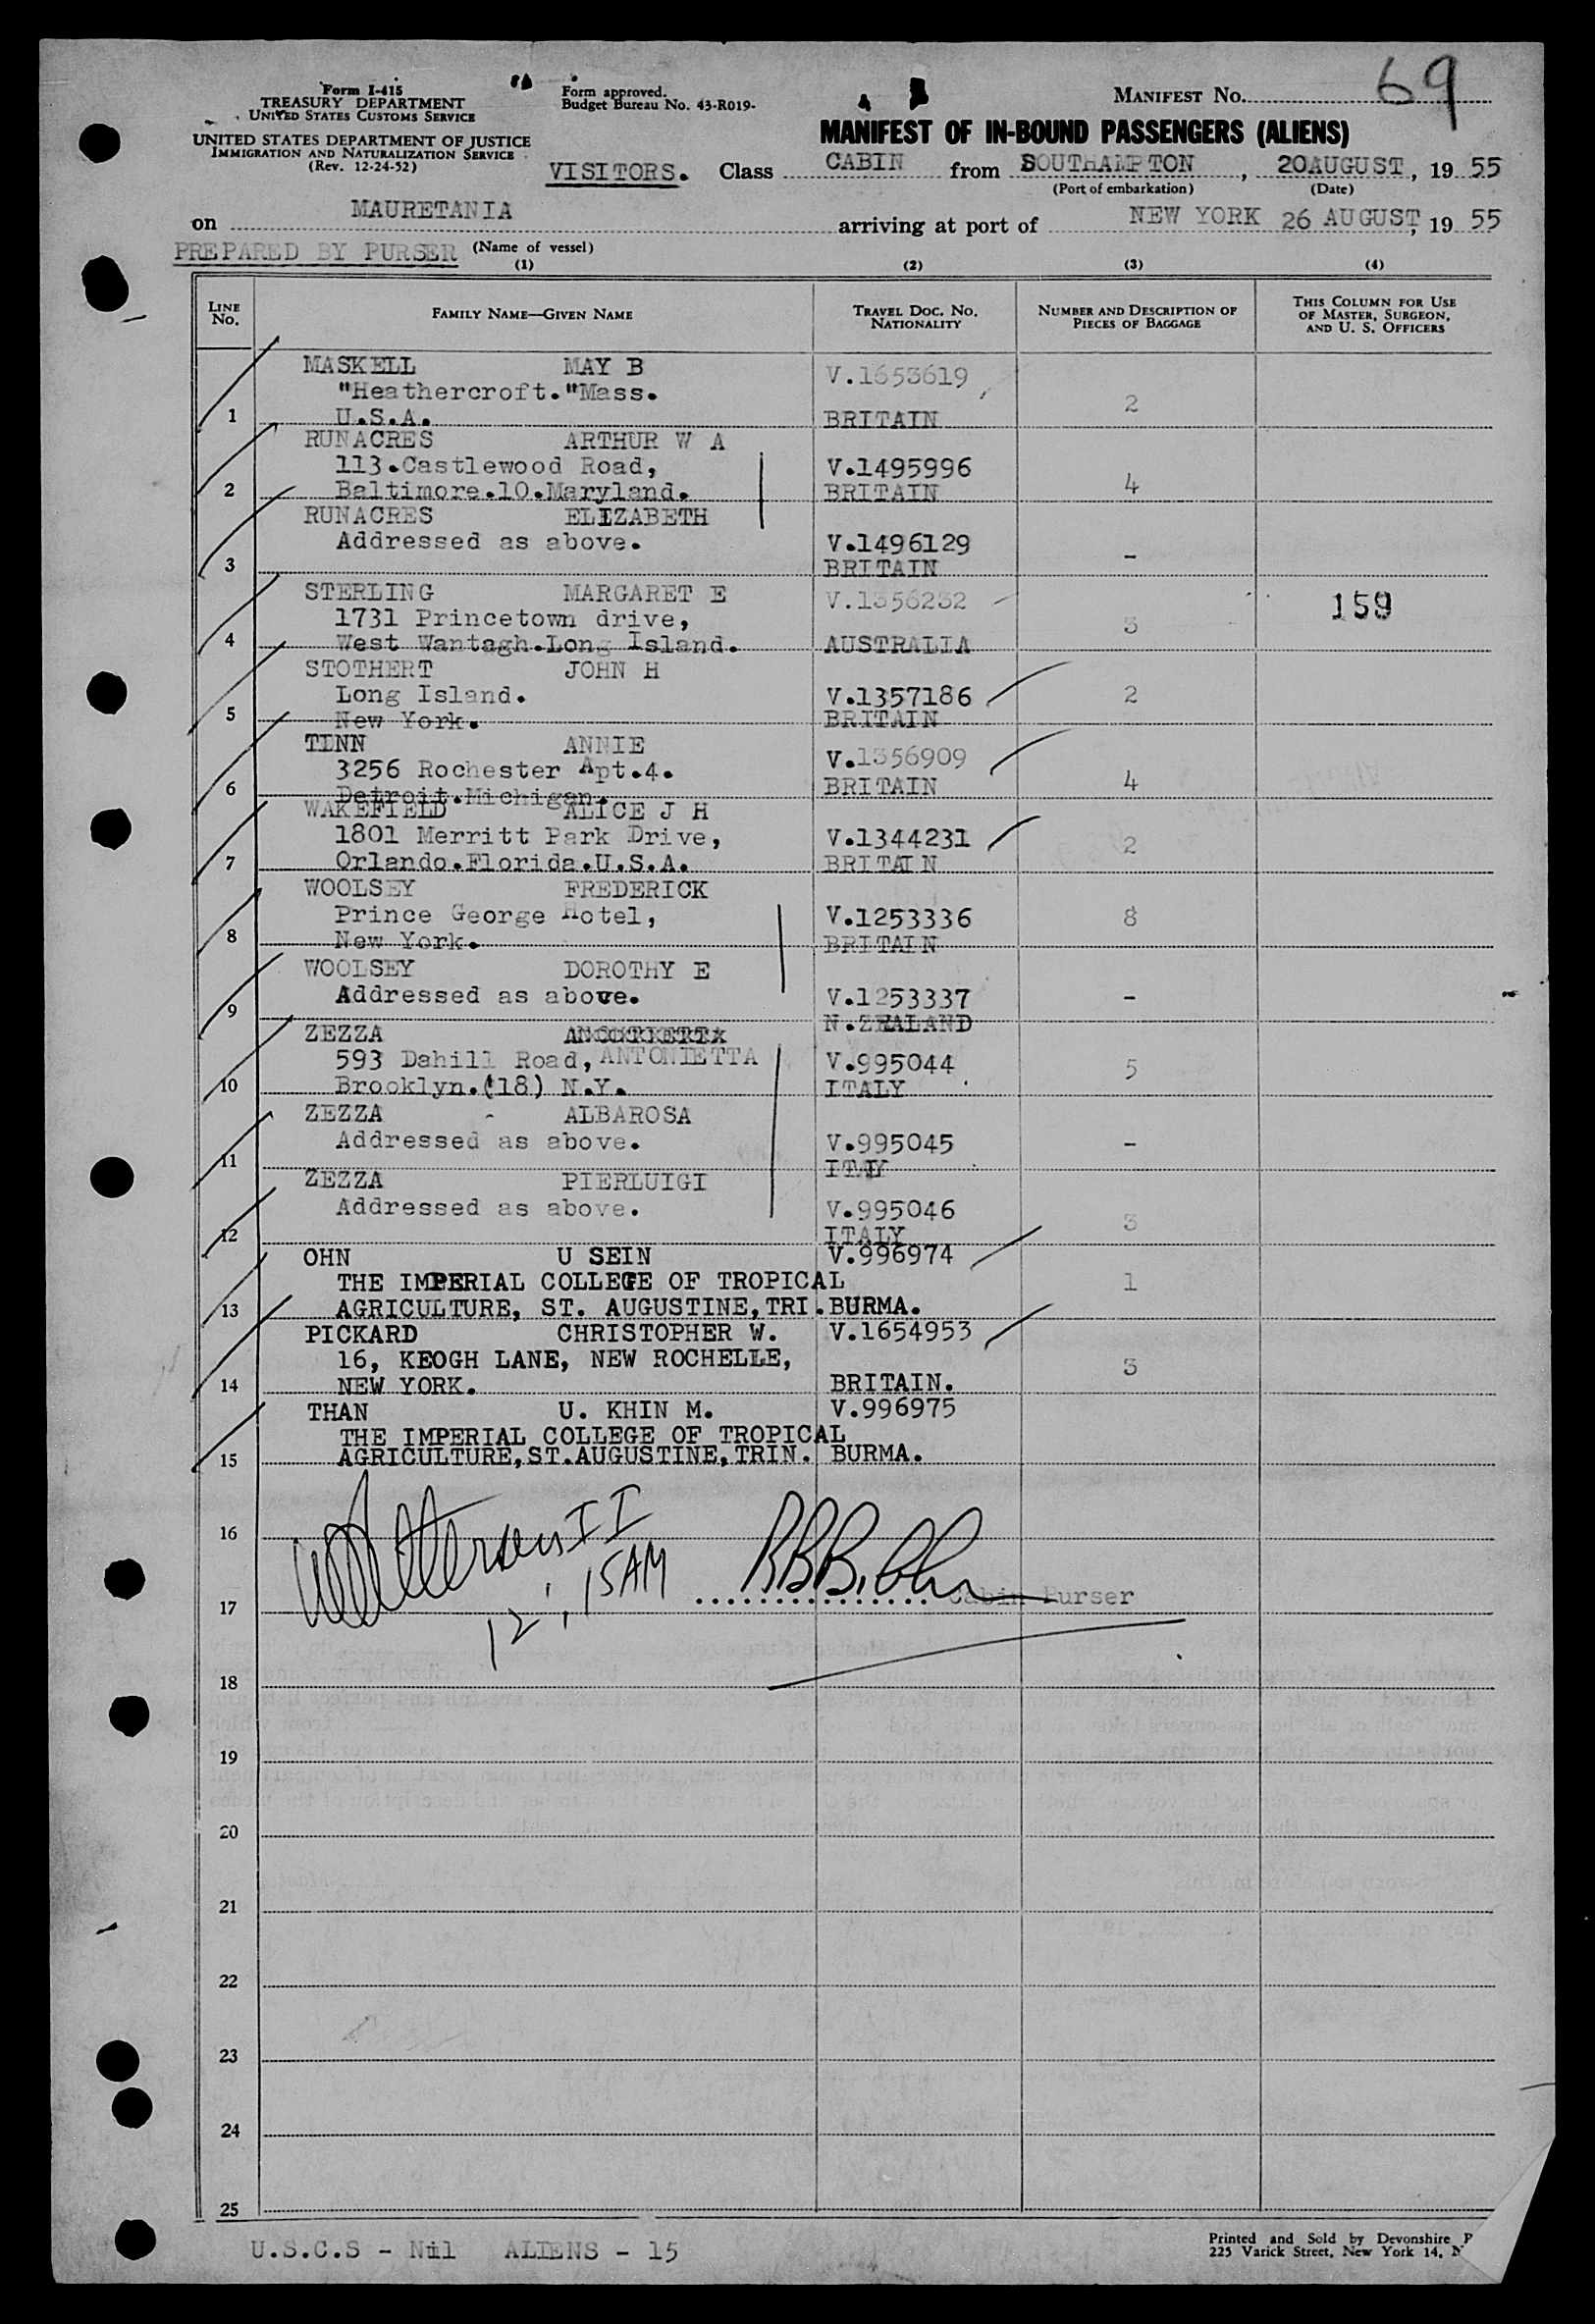 Form I-415
TREASURY DEPARTMENT
UNITED STATES CUSTOMS SERVICE
UNITED STATES DEPARTMENT OF JUSTICE
IMMIGRATION AND NATURALIZATION SERVICE
(Rev. 12-24-52)
Form approved.
Budget Bureau No. 43-R019-
MANIFEST NO. 69
MANIFEST OF IN-BOUND PASSENGERS (ALIENS)
VISITORS. Class CABIN from SOUTHAMPTON, 20AUGUST, 19 55
(Port of embarkation) (Date)
on MAURETANIA arriving at port of NEW YORK 26 AUGUST, 19 55
PREPARED BY PURSER (Name of vessel)
(1) (2) (3) (4)
LINE NO. FAMILY NAME—GIVEN NAME TRAVEL DOC. NO. NATIONALITY NUMBER AND DESCRIPTION OF PIECES OF BAGGAGE THIS COLUMN FOR USE OF MASTER, SURGEON, AND U. S. OFFICERS
MASKELL MAY B V.1653619
"Heathercroft."Mass. 2
1 U.S.A. BRITAIN
RUNACRES ARTHUR W A
113.Castlewood Road, V.1495996
2 Baltimore.10.Maryland. BRITAIN 4
RUNACRES ELIZABETH
Addressed as above. V.1496129
3 BRITAIN -
STERLING MARGARET E V.1356232 159
1731 Princetown drive, 3
4 West Wantagh.Long Island. AUSTRALIA
STOTHERT JOHN H
Long Island. V.1357186 2
5 New York. BRITAIN
TINN ANNIE V.1356909
3256 Rochester Apt.4.
6 Detroit.Michigan. BRITAIN 4
WAKEFIELD ALICE J H
1801 Merritt Park Drive, V.1344231 2
7 Orlando.Florida.U.S.A. BRITAIN
WOOLSEY FREDERICK
Prince George Hotel, V.1253336 8
8 New York. BRITAIN
WOOLSEY DOROTHY E
Addressed as above. V.1253337 -
9 N.ZEALAND
ZEZZA
593 Dahill Road, ANTONIETTA V.995044 5
10 Brooklyn.(18) N.Y. ITALY
ZEZZA ALBAROSA
Addressed as above. V.995045 -
11 ITALY
ZEZZA PIERLUIGI
Addressed as above. V.995046 3
12 ITALY
OHN U SEIN V.996974
THE IMPERIAL COLLEGE OF TROPICAL 1
13 AGRICULTURE, ST. AUGUSTINE,TRI. BURMA.
PICKARD CHRISTOPHER W. V.1654953
16, KEOGH LANE, NEW ROCHELLE, 3
14 NEW YORK. BRITAIN.
THAN U. KHIN M. V.996975
THE IMPERIAL COLLEGE OF TROPICAL
15 AGRICULTURE,ST.AUGUSTINE,TRIN. BURMA.
16
12:15AM
17 Cabin Purser
18
19
20
21
22
23
24
25
U.S.C.S - Nil ALIENS - 15
Printed and Sold by Devonshire
225 Varick Street, New York 14,